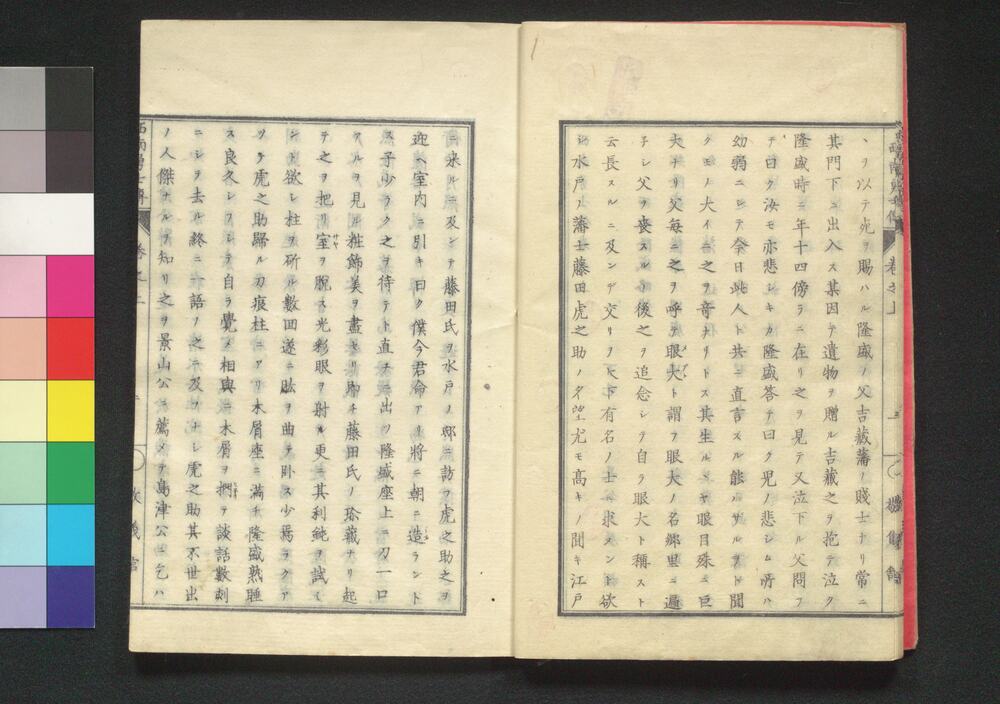 ヽヲ以テ死ヲ賜ハル隆盛ノ父吉藏藩ノ賤士ナリ常ニ
其門下ニ出入ス某因テ遺物ヲ贈ル吉藏之ヲ抱テ泣ク
隆盛時ニ年十四傍ラニ在リ之ヲ見テ又泣下ル父問フ
テ曰ク汝モ亦悲シキカ隆盛答テ曰ク兒ノ悲シム所ハ
幼弱ニシテ今日此人ト共ニ直言スル能ハザルヲト聞
クモノ大イニ之ヲ奇ナリトス其生ルヽヤ眼目殊ニ巨
大ナリ父毎ニ之ヲ呼テ眼大ト謂フ眼大ノ名郷里ニ遍
チシ父ヲ喪スルノ後之ヲ追念シテ自ラ眼大ト稱スト
云長スルニ及ンデ交リヲ天下有名ノ士ニ求メント欲
シ水戸ノ藩士藤田虎之助ノ名望尤モ高キヲ聞キ江戸
卷之上
ニ來ルニ及ンテ藤田氏ヲ水戸ノ邸ニ訪フ虎之助之ヲ
迎ヘ室内ニ引キ曰ク僕今君命アリ將ニ朝ニ造ラント
ス子少ラク之ヲ待テト直チニ出ツ隆盛座上ニ刀一口
アルヲ見ル粧飾美ヲ盡セリ即チ藤田氏ノ珍藏ナリ起
テ之ヲ把リ室ヲ脱ス光彩眼ヲ射ル更ニ其利鈍ヲ試ミ
ント欲シ柱ヲ斫ル數回遂ニ肱ヲ曲テ卧ス少焉ラクア
ツテ虎之助歸ル刀痕柱ニアリ木屑座ニ滿チ隆盛熟睡
ス良久シフシテ自ラ覺メ相與ニ木屑ヲ捫テ談話數刻
ニシヲ去ル終ニ一語ノ之ニ及フナシ虎之助其不世出
ノ人傑ナルヲ知リ之ヲ景山公ニ薦メテ島津公ニ乞ハ